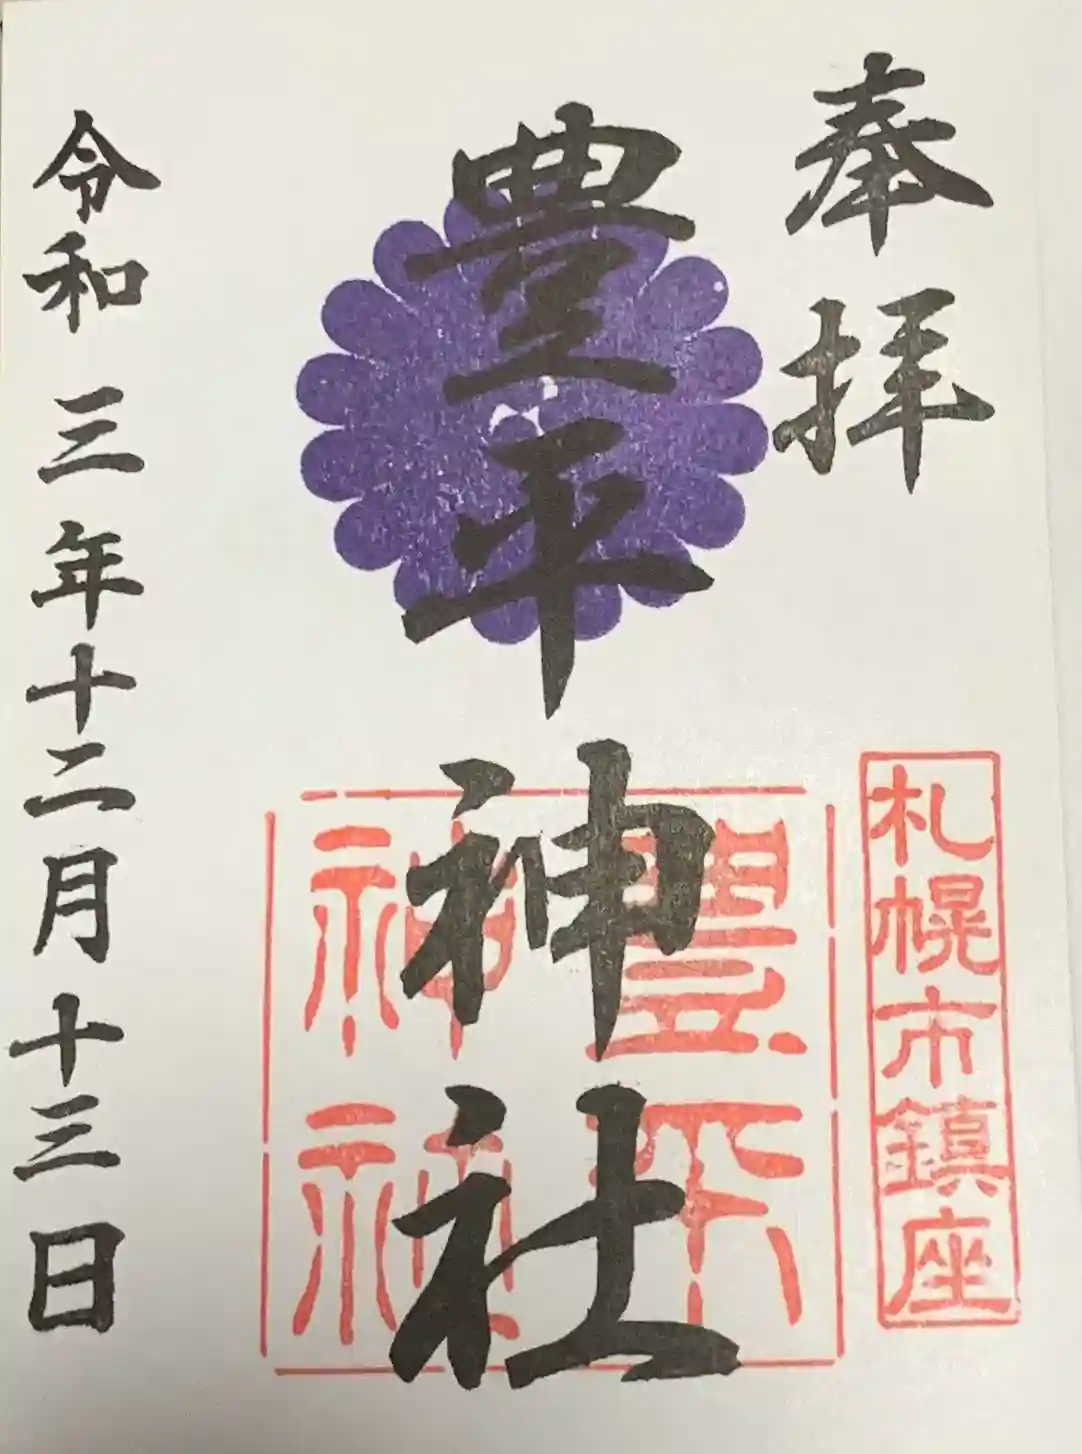 奉拝
札幌市鎮座
豊平神社
豊平
神社
令和三年十二月十三日